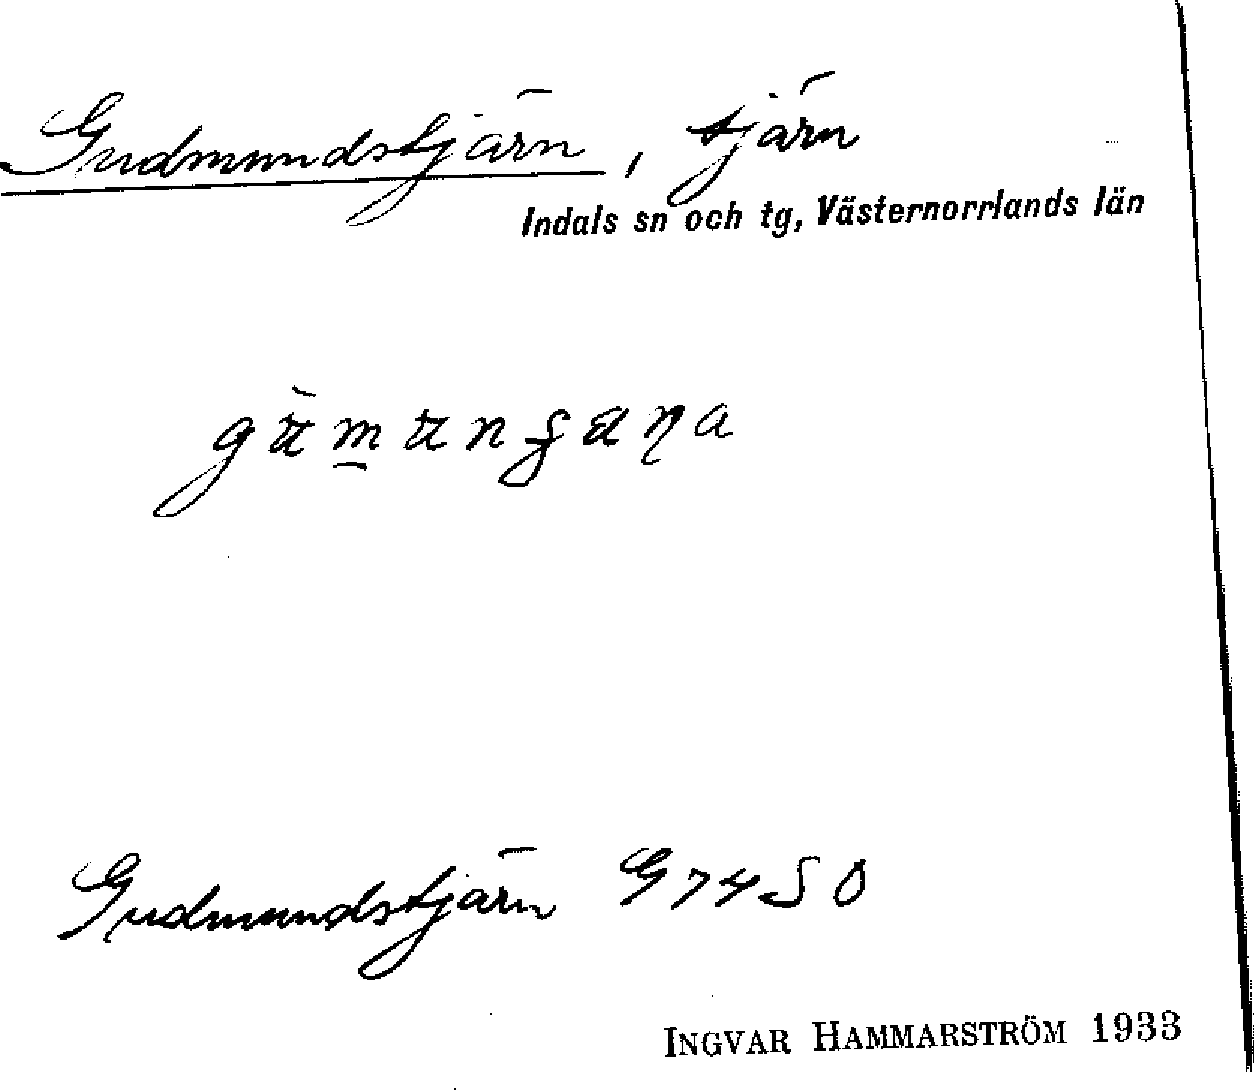 Gudmundstjärn, tjärn
Indals sn och tg, Västernorrlands län
Gudmundstjärn G74SO
INGVAR HAMMARSTRÖM 1933